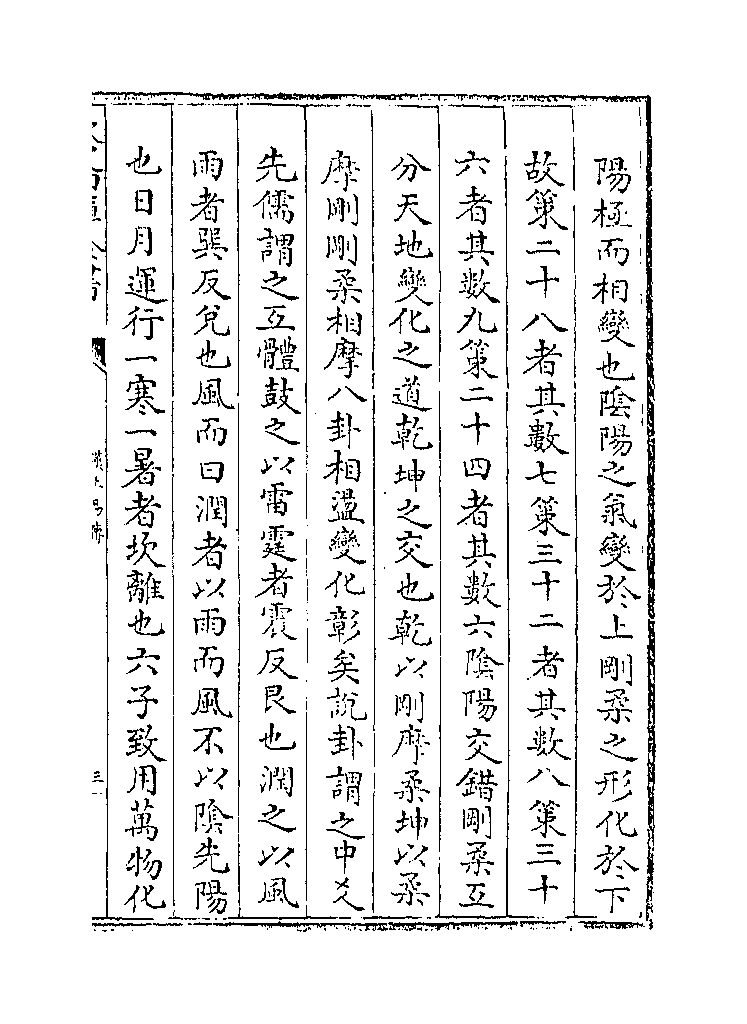 陽極而相變也陰陽之氣變於上剛柔之形化於下
故策二十八者其數七策三十二者其數八策三十
六者其數九策二十四者其數六陰陽交錯剛柔互
分天地變化之道乾坤之交也乾以剛摩柔坤以柔
摩剛剛柔相摩八卦相盪變化彰矣說卦謂之中爻
先儒謂之互體鼓之以雷霆者震反艮也潤之以風
雨者巽反兌也風而曰潤者以雨而風不以陰先陽
也日月運行一寒一暑者坎離也六子致用萬物化